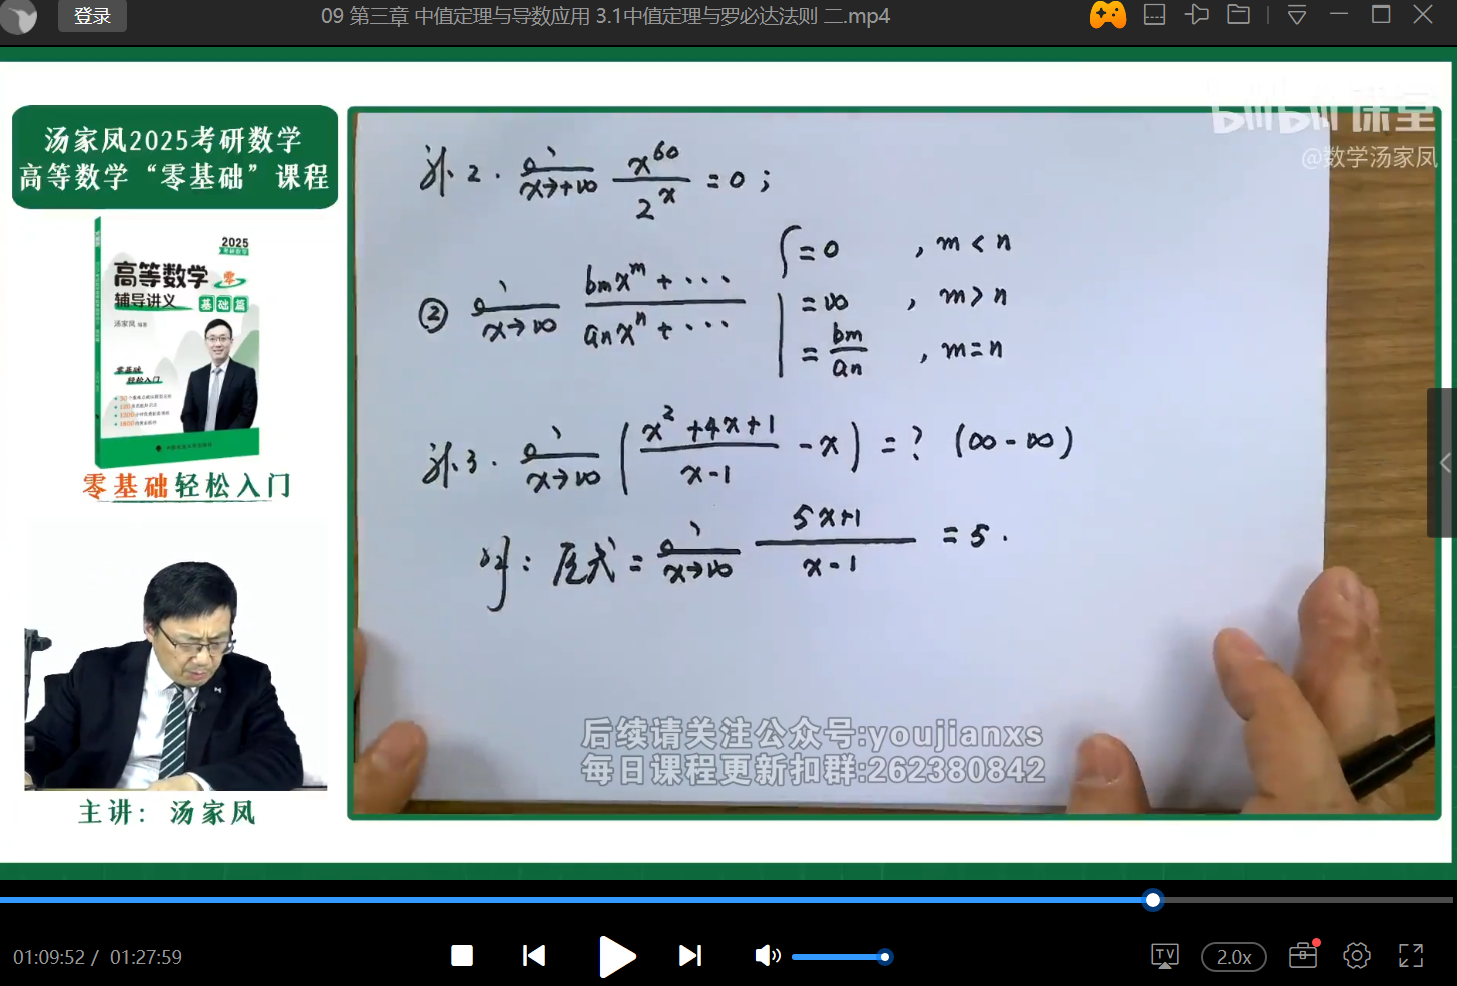 登录
09 第三章 中值定理与导数应用 3.1中值定理与罗必达法则 二.mp4
汤家凤2025考研数学
高等数学“零基础”课程
bilibili课堂
@数学汤家凤
2025
高等数学 零
辅导讲义 基础篇
汤家凤 编著
零基础
轻松入门
零基础轻松入门
主讲：汤家凤
例2. lim x→+∞ x^60 / 2^x = 0 ;
② lim x→∞ (bm x^m + ···) / (an x^n + ···) { = 0 , m < n
= ∞ , m > n
= bm/an , m = n
例3. lim x→∞ ( (x^2+4x+1)/(x-1) - x ) = ? (∞-∞)
解: 原式 = lim x→∞ (5x+1)/(x-1) = 5.
后续请关注公众号:youjianxs
每日课程更新扣群:262380842
01:09:52 / 01:27:59
TV
2.0x